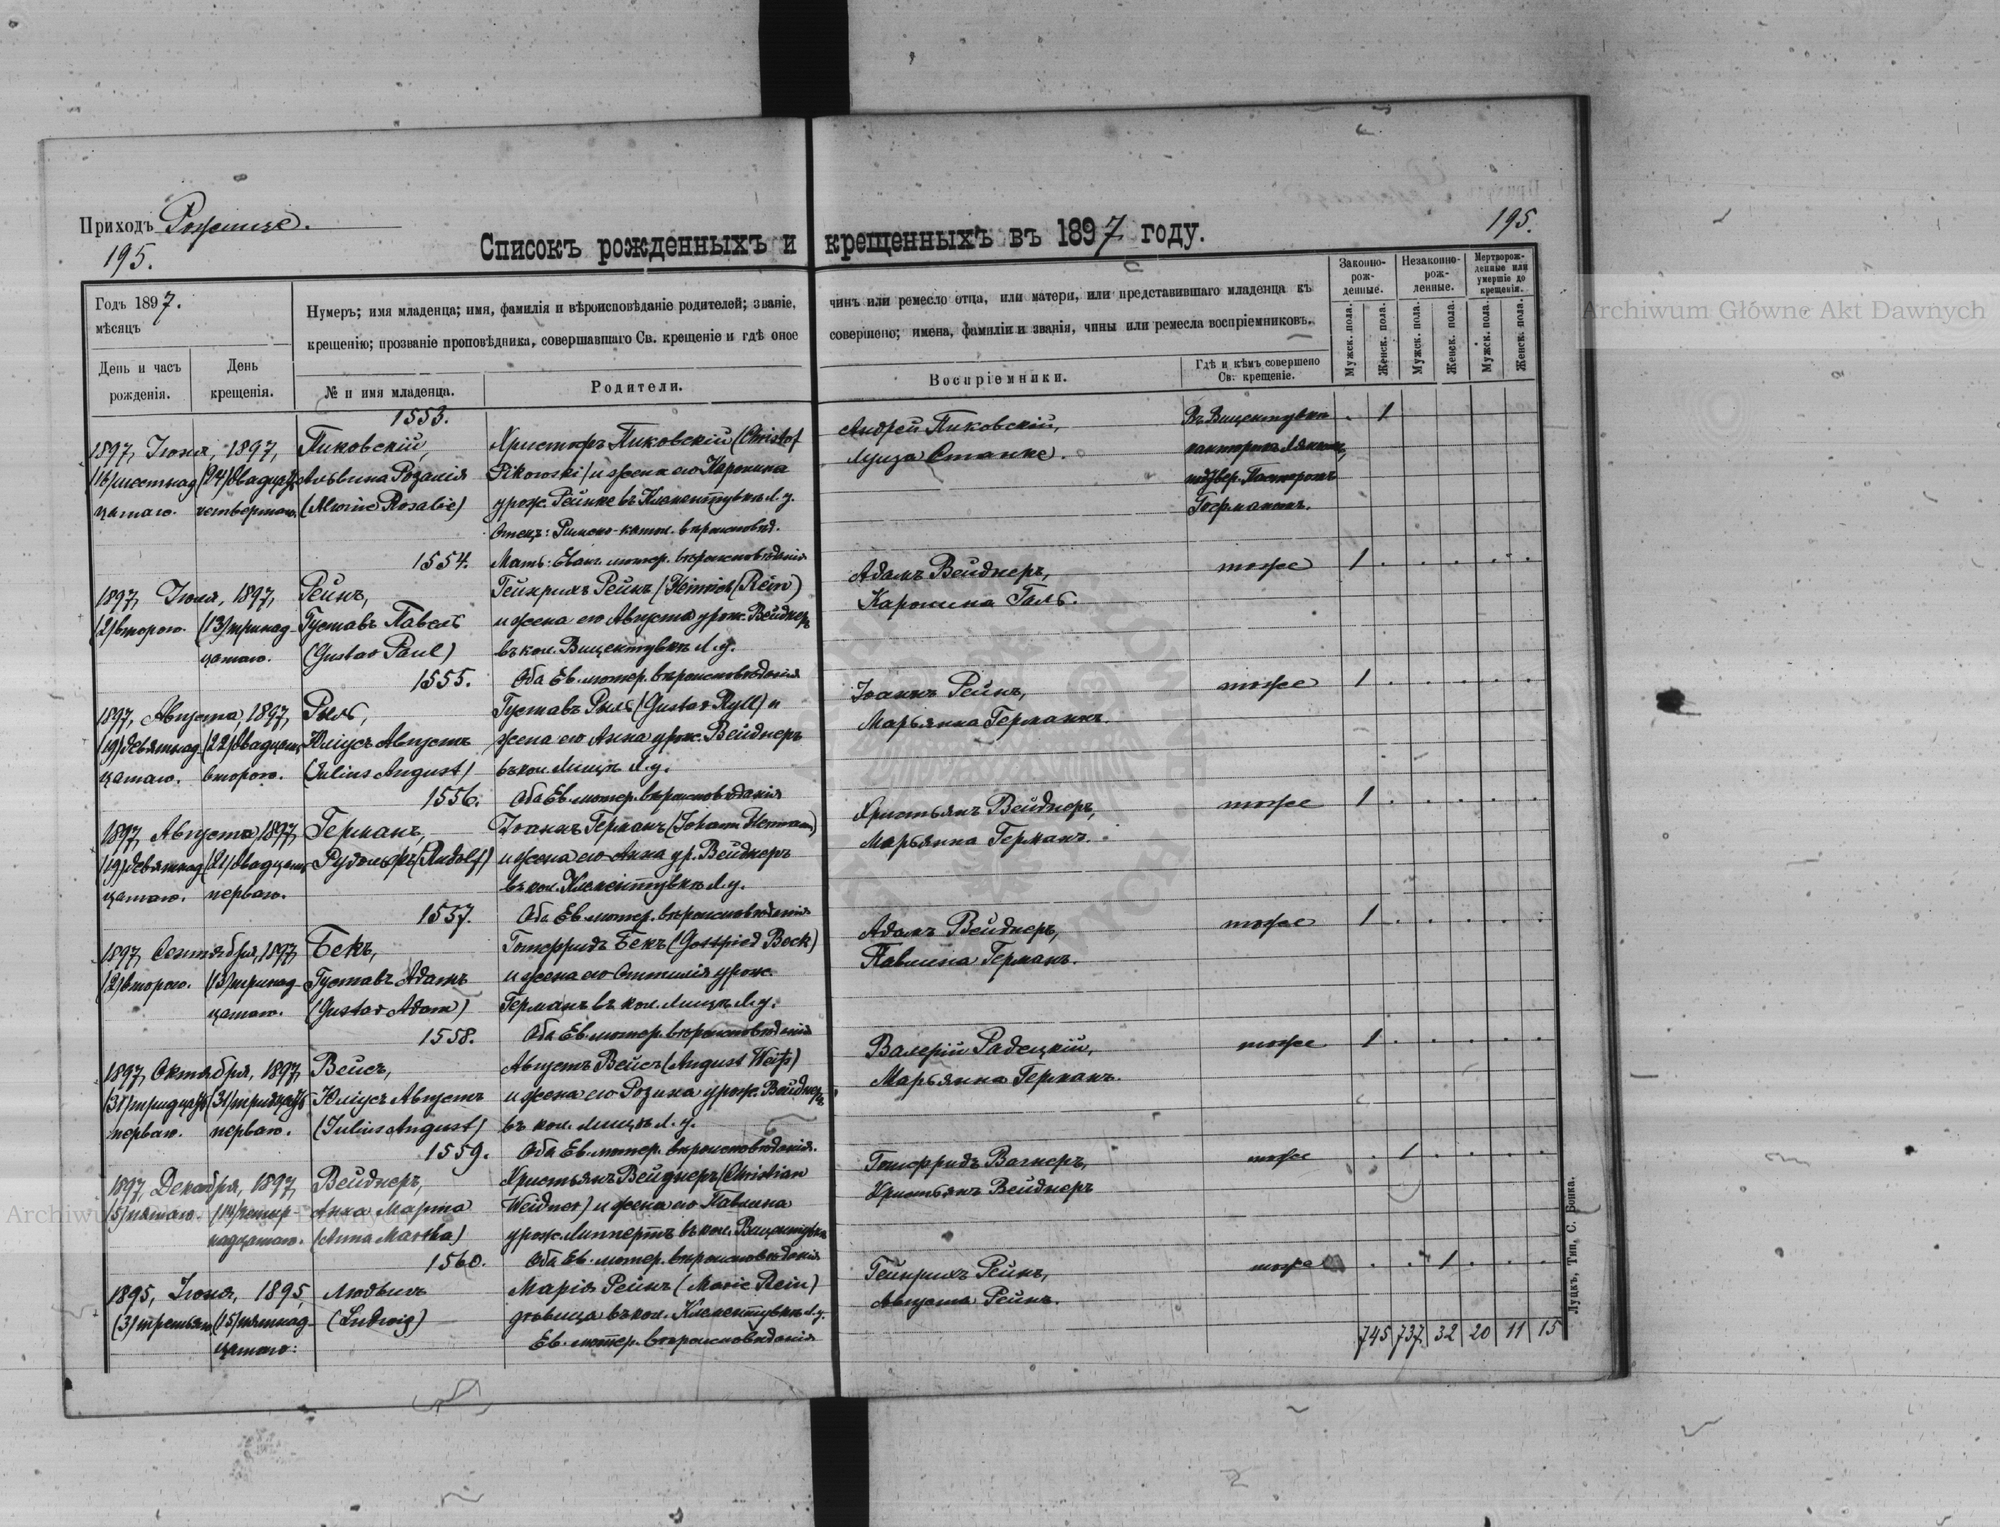 Приходъ Рожище.
195.
195.
Списокъ рожденныхъ и крещенныхъ въ 1897 году.
Годъ 1897.
мѣсяцъ
День и часъ рожденія.
День крещенія.
Нумеръ; имя младенца; имя, фамилія и вѣроисповѣданіе родителей; званіе, чинъ или ремесло отца, или матери, или представившаго младенца къ
крещенію; прозваніе проповѣдника, совершавшаго Св. крещеніе и гдѣ оное совершено; имена, фамиліи и званія, чины или ремесла воспріемниковъ.
№ и имя младенца.
Родители.
Воспріемники.
Гдѣ и кѣмъ совершено Св. крещеніе.
Законно-рож-денные.
Незаконно-рож-денные.
Мертворож-денные или умершіе до крещенія.
Мужск. пола.
Женск. пола.
Мужск. пола.
Женск. пола.
Мужск. пола.
Женск. пола.
1553.
1897, Іюня, 1897,
(16) шестнад-цатаго.
(24) двадцать четвертаго.
Пиковскій,
Альвина Розалія
(Alwine Rosalie)
Христофъ Пиковскій (Christof
Pikowski) и жена его Каролина
урож. Рейнке въ Клементувкѣ Л. у.
Отецъ: Римско-катол. вѣроисповѣд.
Мать: Еван. лютер. вѣроисповѣданія
Андрей Пиковскій,
Луиза Станке.
Въ Вицентувкѣ
канторомъ
подтвер. Пасторомъ
1
1554.
1897, Іюля, 1897,
(2) втораго.
(13) тринад-цатаго.
Рейнъ,
Густавъ Павелъ
(Gustav Paul)
Гейнрихъ Рейнъ (Heinrich Rein)
и жена его Августа урож. Вейднеръ
въ кол. Вицентувкѣ Л. у.
Оба Ев. лютер. вѣроисповѣданія
Адамъ Вейднеръ,
Каролина Галь.
тоже
1
1555.
1897, Августа, 1897,
(19) девятнад-цатаго.
(22) двадцать втораго.
Рыль,
Юліусъ Августъ
(Julius August)
Густавъ Рыль (Gustav Ryll) и
жена его Анна урож. Вейднеръ
въ кол. Лищѣ Л. у.
Оба Ев. лютер. вѣроисповѣданія
Іоаннъ Рейнъ,
Марьянна Германъ.
тоже
1
1556.
1897, Августа, 1897,
(19) девятнад-цатаго.
(21) двадцать перваго.
Германъ,
Рудольфъ (Rudolf)
Іоаннъ Германъ (Johann Hermann)
и жена его Анна ур. Вейднеръ
въ кол. Клементувкѣ Л. у.
Оба Ев. лютер. вѣроисповѣданія
Христьянъ Вейднеръ,
Марьянна Германъ.
тоже
1
1557.
1897, Сентября, 1897,
(2) втораго.
(13) тринад-цатаго.
Бекъ,
Густавъ Адамъ
(Gustav Adam)
Готфридъ Бекъ (Gottfried Bock)
и жена его Оттилія урож.
Германъ въ кол. Лищѣ Л. у.
Оба Ев. лютер. вѣроисповѣданія
Адамъ Вейднеръ,
Павлина Германъ.
тоже
1
1558.
1897, Октября, 1897,
(31) тридцать перваго.
(31) тридцать перваго.
Вейсъ,
Юліусъ Августъ
(Julius August)
Августъ Вейсъ (August Weiß)
и жена его Розина урож. Вейднеръ
въ кол. Лищѣ Л. у.
Оба Ев. лютер. вѣроисповѣданія.
Валерій Радецкій,
Марьянна Германъ.
тоже
1
1559.
1897, Декабря, 1897,
(5) пятаго.
(14) четыр-надцатаго.
Вейднеръ,
Анна Марта
(Anna Martha)
Христьянъ Вейднеръ (Christian
Weidner) и жена его Павлина
урож. Липпертъ въ кол. Вицентувкѣ
Оба Ев. лютер. вѣроисповѣданія
Готфридъ Вагнеръ,
Христьянъ Вейднеръ
тоже
1
1560.
1895, Іюня, 1895,
(3) третьяго
(15) пятнад-цатаго.
Людвигъ
(Ludwig)
Марія Рейнъ (Marie Rein)
вдовица въ кол. Клементувкѣ Л. у.
Ев. лютер. вѣроисповѣданія
Гейнрихъ Рейнъ,
Августа Рейнъ.
тоже
1
745 737 32 20 11 15
Луцкъ, Тип. С. Бонка.
Archiwum Główne Akt Dawnych
Archiwum Główne Akt Dawnych